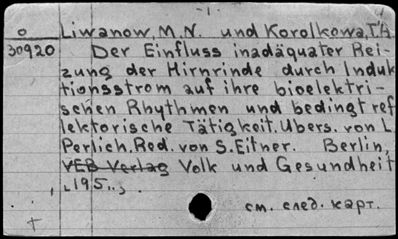 -1-
Liwanow, M.N. und Korolkowa, T.A.
0
30920
Der Einfluss inadäquater Rei-
zung der Hirnrinde durch Induk
tionsstrom auf ihre bioelektri-
schen Rhythmen und bedingt ref
lektorische Tätigkeit. Übers. von L.
Perlich. Red. von S. Eitner. Berlin,
VEB Verlag Volk und Gesundheit
,,195..,
см. след. карт.